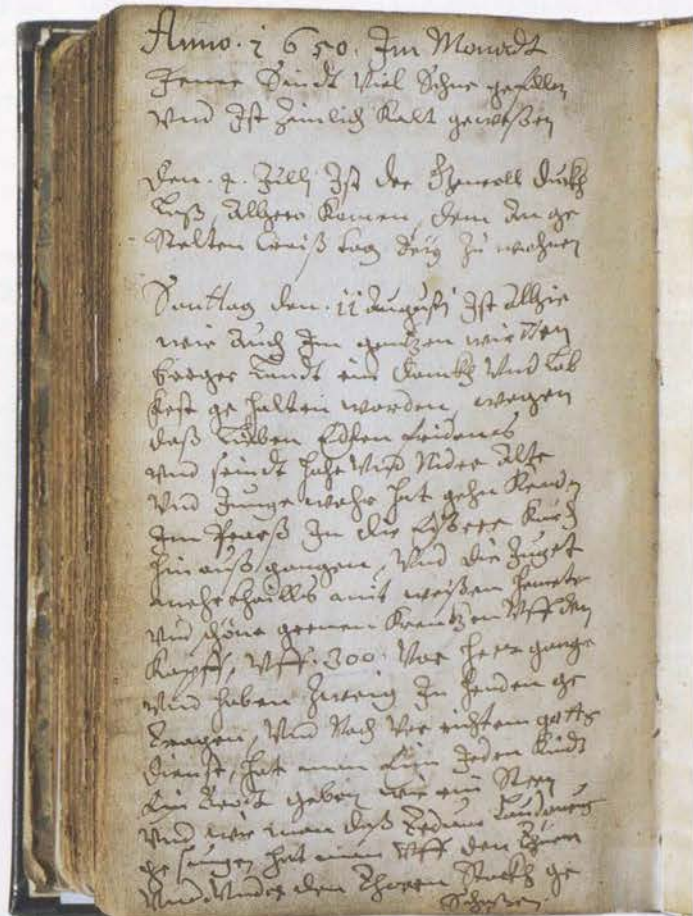 Anno. 1650. Im Monadt
Jener Sindt Viel Schne gefallen
Vnd Ist Zimlich Kalt geweßen
Den. 4. Jullj Ist der General durch
Alhero Komen, dem An ge
Stelten Creiß tag Zu
Sonttag den. 11 Augustj Ist Alhie
wie Auch Im gantzen wirtten
berger Landt ein Danckh Vnd Lob
fest ge halten worden, wegen
daß Lieben Edlen fridenß
Vnd seindt Hohe Vnd Nider Alte
Vnd Junge wehr hat gehn Kenden
Im Pearß In die Kürch
hin auß gangen, Vnd die Juget
mehrtheills mit weißen Hemeter
Vnd schöne greenen Krentzen Vff den
Kopff, Vff. 300. Vor heer gange
Vnd haben Zweig In Henden ge
tragen, Vnd Nach Ver richtem gotts
dienst, hat man Eim Jeden Kindt
Ein geben wie ein Stern
Vnd wie man daß Tedeum Laudamus
ge sungen hat man Vff den
Vnd den Thoren Stuckh ge
Schoßen.